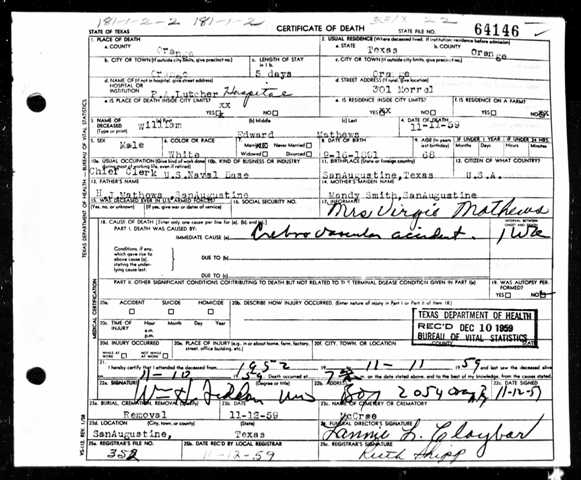 181-1-2-2 181-1-2
STATE OF TEXAS CERTIFICATE OF DEATH STATE FILE NO. 64146
1. PLACE OF DEATH 2. USUAL RESIDENCE (Where deceased lived. If institution: residence before admission)
a. COUNTY Orange a. STATE Texas b. COUNTY Orange
b. CITY OR TOWN (If outside city limits, give precinct no.) c. LENGTH OF STAY in 1 b. c. CITY OR TOWN (If outside city limits, give precinct no.)
Orange 5 days Orange
d. NAME OF (If not in hospital, give street address) HOSPITAL OR INSTITUTION d. STREET ADDRESS (If rural, give location)
Lutcher Hospital 301 Morrel
e. IS PLACE OF DEATH INSIDE CITY LIMITS? e. IS RESIDENCE INSIDE CITY LIMITS? f. IS RESIDENCE ON A FARM?
YES NO YES NO YES NO
3. NAME OF DECEASED (Type or print) (a) First (b) Middle (c) Last 4. DATE OF DEATH
William Edward Mathews 11-11-59
5. SEX 6. COLOR OR RACE 7. Married Never Married Widowed Divorced 8. DATE OF BIRTH 9. AGE (In years last birthday) IF UNDER 1 YEAR IF UNDER 24 HRS.
Months Days Hours Minutes
Male White 68
10a. USUAL OCCUPATION (Give kind of work done during most of working life, even if retired) 10b. KIND OF BUSINESS OR INDUSTRY 11. BIRTHPLACE (State or foreign country) 12. CITIZEN OF WHAT COUNTRY?
Chief Clerk U.S.Naval Base SanAugustine,Texas U.S.A.
13. FATHER'S NAME 14. MOTHER'S MAIDEN NAME
Mathews, SanAugustine Mandy Smith,SanAugustine
15. WAS DECEASED EVER IN U.S. ARMED FORCES? 16. SOCIAL SECURITY NO. 17. INFORMANT
(Yes, no, or unknown) (If yes, give war or dates of service)
Mrs Virgie Mathews
18. CAUSE OF DEATH [Enter only one cause per line for (a), (b), and (c).] INTERVAL BETWEEN ONSET AND DEATH
PART I. DEATH WAS CAUSED BY:
IMMEDIATE CAUSE (a) Cerebrovascular accident. 1 wk
Conditions, if any, which gave rise to above cause (a), stating the underlying cause last.
DUE TO (b)
DUE TO (c)
PART II. OTHER SIGNIFICANT CONDITIONS CONTRIBUTING TO DEATH BUT NOT RELATED TO THE TERMINAL DISEASE CONDITION GIVEN IN PART I(a) 19. WAS AUTOPSY PERFORMED?
YES NO
20a. ACCIDENT SUICIDE HOMICIDE 20b. DESCRIBE HOW INJURY OCCURRED. (Enter nature of injury in Part I or Part II of item 18.)
20c. TIME OF INJURY Hour Month Day Year
a.m.
p.m.
TEXAS DEPARTMENT OF HEALTH
REC'D DEC 10 1959
BUREAU OF VITAL STATISTICS
20d. INJURY OCCURRED 20e. PLACE OF INJURY (e.g. in or about home, farm, factory, street, office building, etc.) 20f. CITY, TOWN, OR LOCATION COUNTY STATE
WHILE AT WORK NOT WHILE AT WORK
21. I hereby certify that I attended the deceased from 1952 to 11-11 1959
22a. SIGNATURE (Degree or title) 22b. ADDRESS 22c. DATE SIGNED
Box 2054 11-12-59
23a. BURIAL, CREMATION, REMOVAL 23b. DATE 23c. NAME OF CEMETERY OR CREMATORY
Removal 11-12-59 McCrae
23d. LOCATION (City, town, or county) (State) 24. FUNERAL DIRECTOR'S SIGNATURE
SanAugustine, Texas Fannie L. Claybar
25a. REGISTRAR'S FILE NO. 25b. DATE REC'D BY LOCAL REGISTRAR 25c. REGISTRAR'S SIGNATURE
352 11-12-59 Ruth
TEXAS DEPARTMENT OF HEALTH — BUREAU OF VITAL STATISTICS
MEDICAL CERTIFICATION